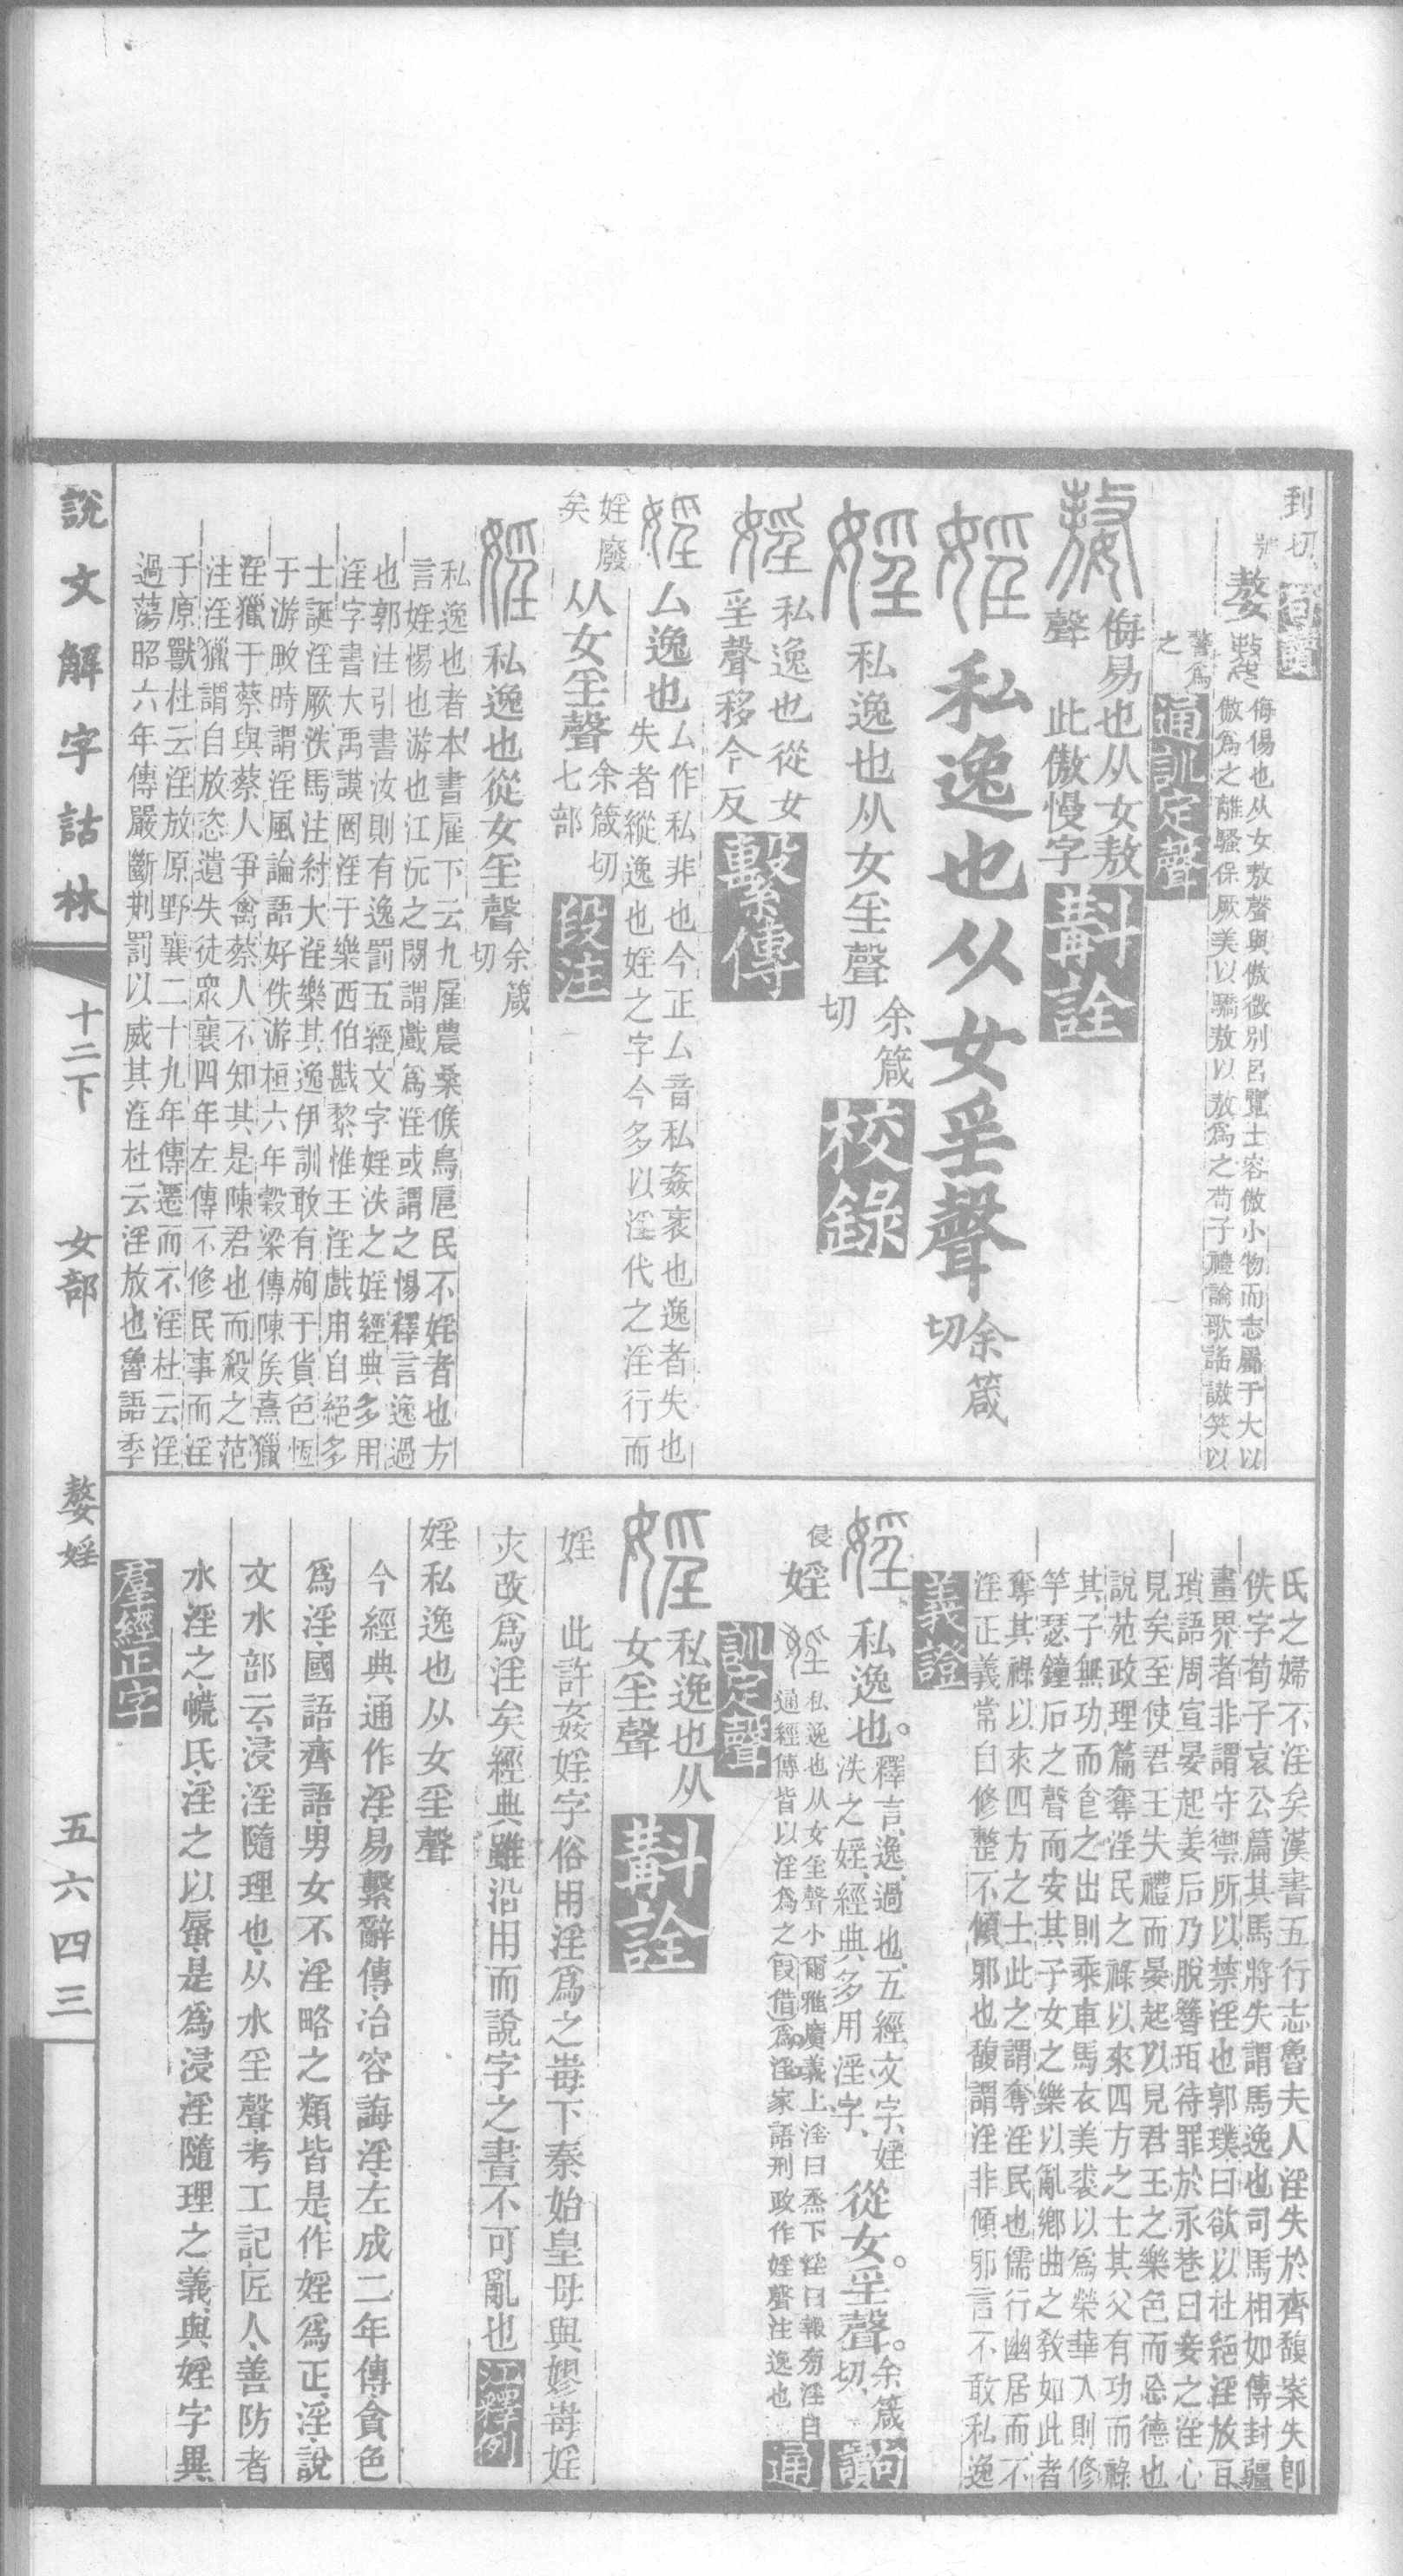 到切
句讀
嫯
侮傷也从女敖聲與傲微別呂覽士容傲小物而志屬于大以
傲爲之離騷保厥美以驕敖以敖爲之荀子禮論歌謠謸笑以
謷爲
之
通訓定聲
侮易也从女敖
聲 此傲慢字
斠詮
私逸也从女㸒聲
余箴
切
私逸也从女㸒聲
余箴
切
校錄
私逸也從女
㸒聲移今反
繫傳
厶逸也
厶作私非也今正厶音私姦衺也逸者失也
失者縱逸也婬之字今多以淫代之淫行而
婬廢
矣
从女㸒聲
余箴切
七部
段注
私逸也從女㸒聲
余箴
切
私逸也者本書雇下云九雇農桑候鳥扈民不婬者也方
言婬惕也游也江沅之閒謂戲爲淫或謂之惕釋言逸過
也郭注引書汝則有逸罰五經文字婬泆之婬經典多用
淫字書大禹謨罔淫于樂西伯戡黎惟王淫戲用自絕多
士誕淫厥泆馬注紂大淫樂其逸伊訓敢有殉于貨色恆
于游畋時謂淫風論語好佚游桓六年穀梁傳陳矦熹獵
淫獵于蔡與蔡人爭禽蔡人不知其是陳君也而殺之范
注淫獵謂自放恣遺失徒眾襄四年左傳不修民事而淫
于原獸杜云淫放原野襄二十九年傳遷而不淫杜云淫
過蕩昭六年傳嚴斷刑罰以威其淫杜云淫放也魯語季
氏之婦不淫矣漢書五行志魯夫人淫失於齊馥案失卽
佚字荀子哀公篇其馬將失謂馬逸也司馬相如傳封疆
畫界者非謂守禦所以禁淫也郭璞曰欲以杜絕淫放
瑣語周宣晏起姜后乃脫簪珥待罪於永巷曰妾之淫心
見矣至使君王失禮而晏起以見君王之樂色而忘德也
說苑政理篇奪淫民之祿以來四方之士其父有功而祿
其子無功而食之出則乘車馬衣美裘以爲榮華入則修
竽瑟鐘石之聲而安其子女之樂以亂鄉曲之敎如此者
奪其祿以來四方之士此之謂奪淫民也儒行幽居而不
淫正義常自修整不傾邪也馥謂淫非傾邪言不敢私逸
義證
私逸也。
釋言逸過也五經文字婬
泆之婬經典多用淫字
從女。㸒聲。
余箴
切
句讀
侵
婬
私逸也从女㸒聲小爾雅廣義上淫曰烝下淫曰報旁淫曰
通經傳皆以淫爲之叚借爲淫家語刑政作婬聲注逸也
通訓定聲
私逸也从
女㸒聲
斠詮
婬 此許姦婬字俗用淫爲之毐下秦始皇母與嫪毐婬
灾改爲淫矣經典雖沿用而說字之書不可亂也
江釋例
婬私逸也从女㸒聲
今經典通作淫易繫辭傳冶容誨淫左成二年傳貪色
爲淫國語齊語男女不淫略之類皆是作婬爲正淫說
文水部云浸淫隨理也从水㸒聲考工記匠人善防者
水淫之㡛氏淫之以蜃是爲浸淫隨理之義與婬字異
羣經正字
說文解字詁林
十二下
女部
嫯婬
五六四三